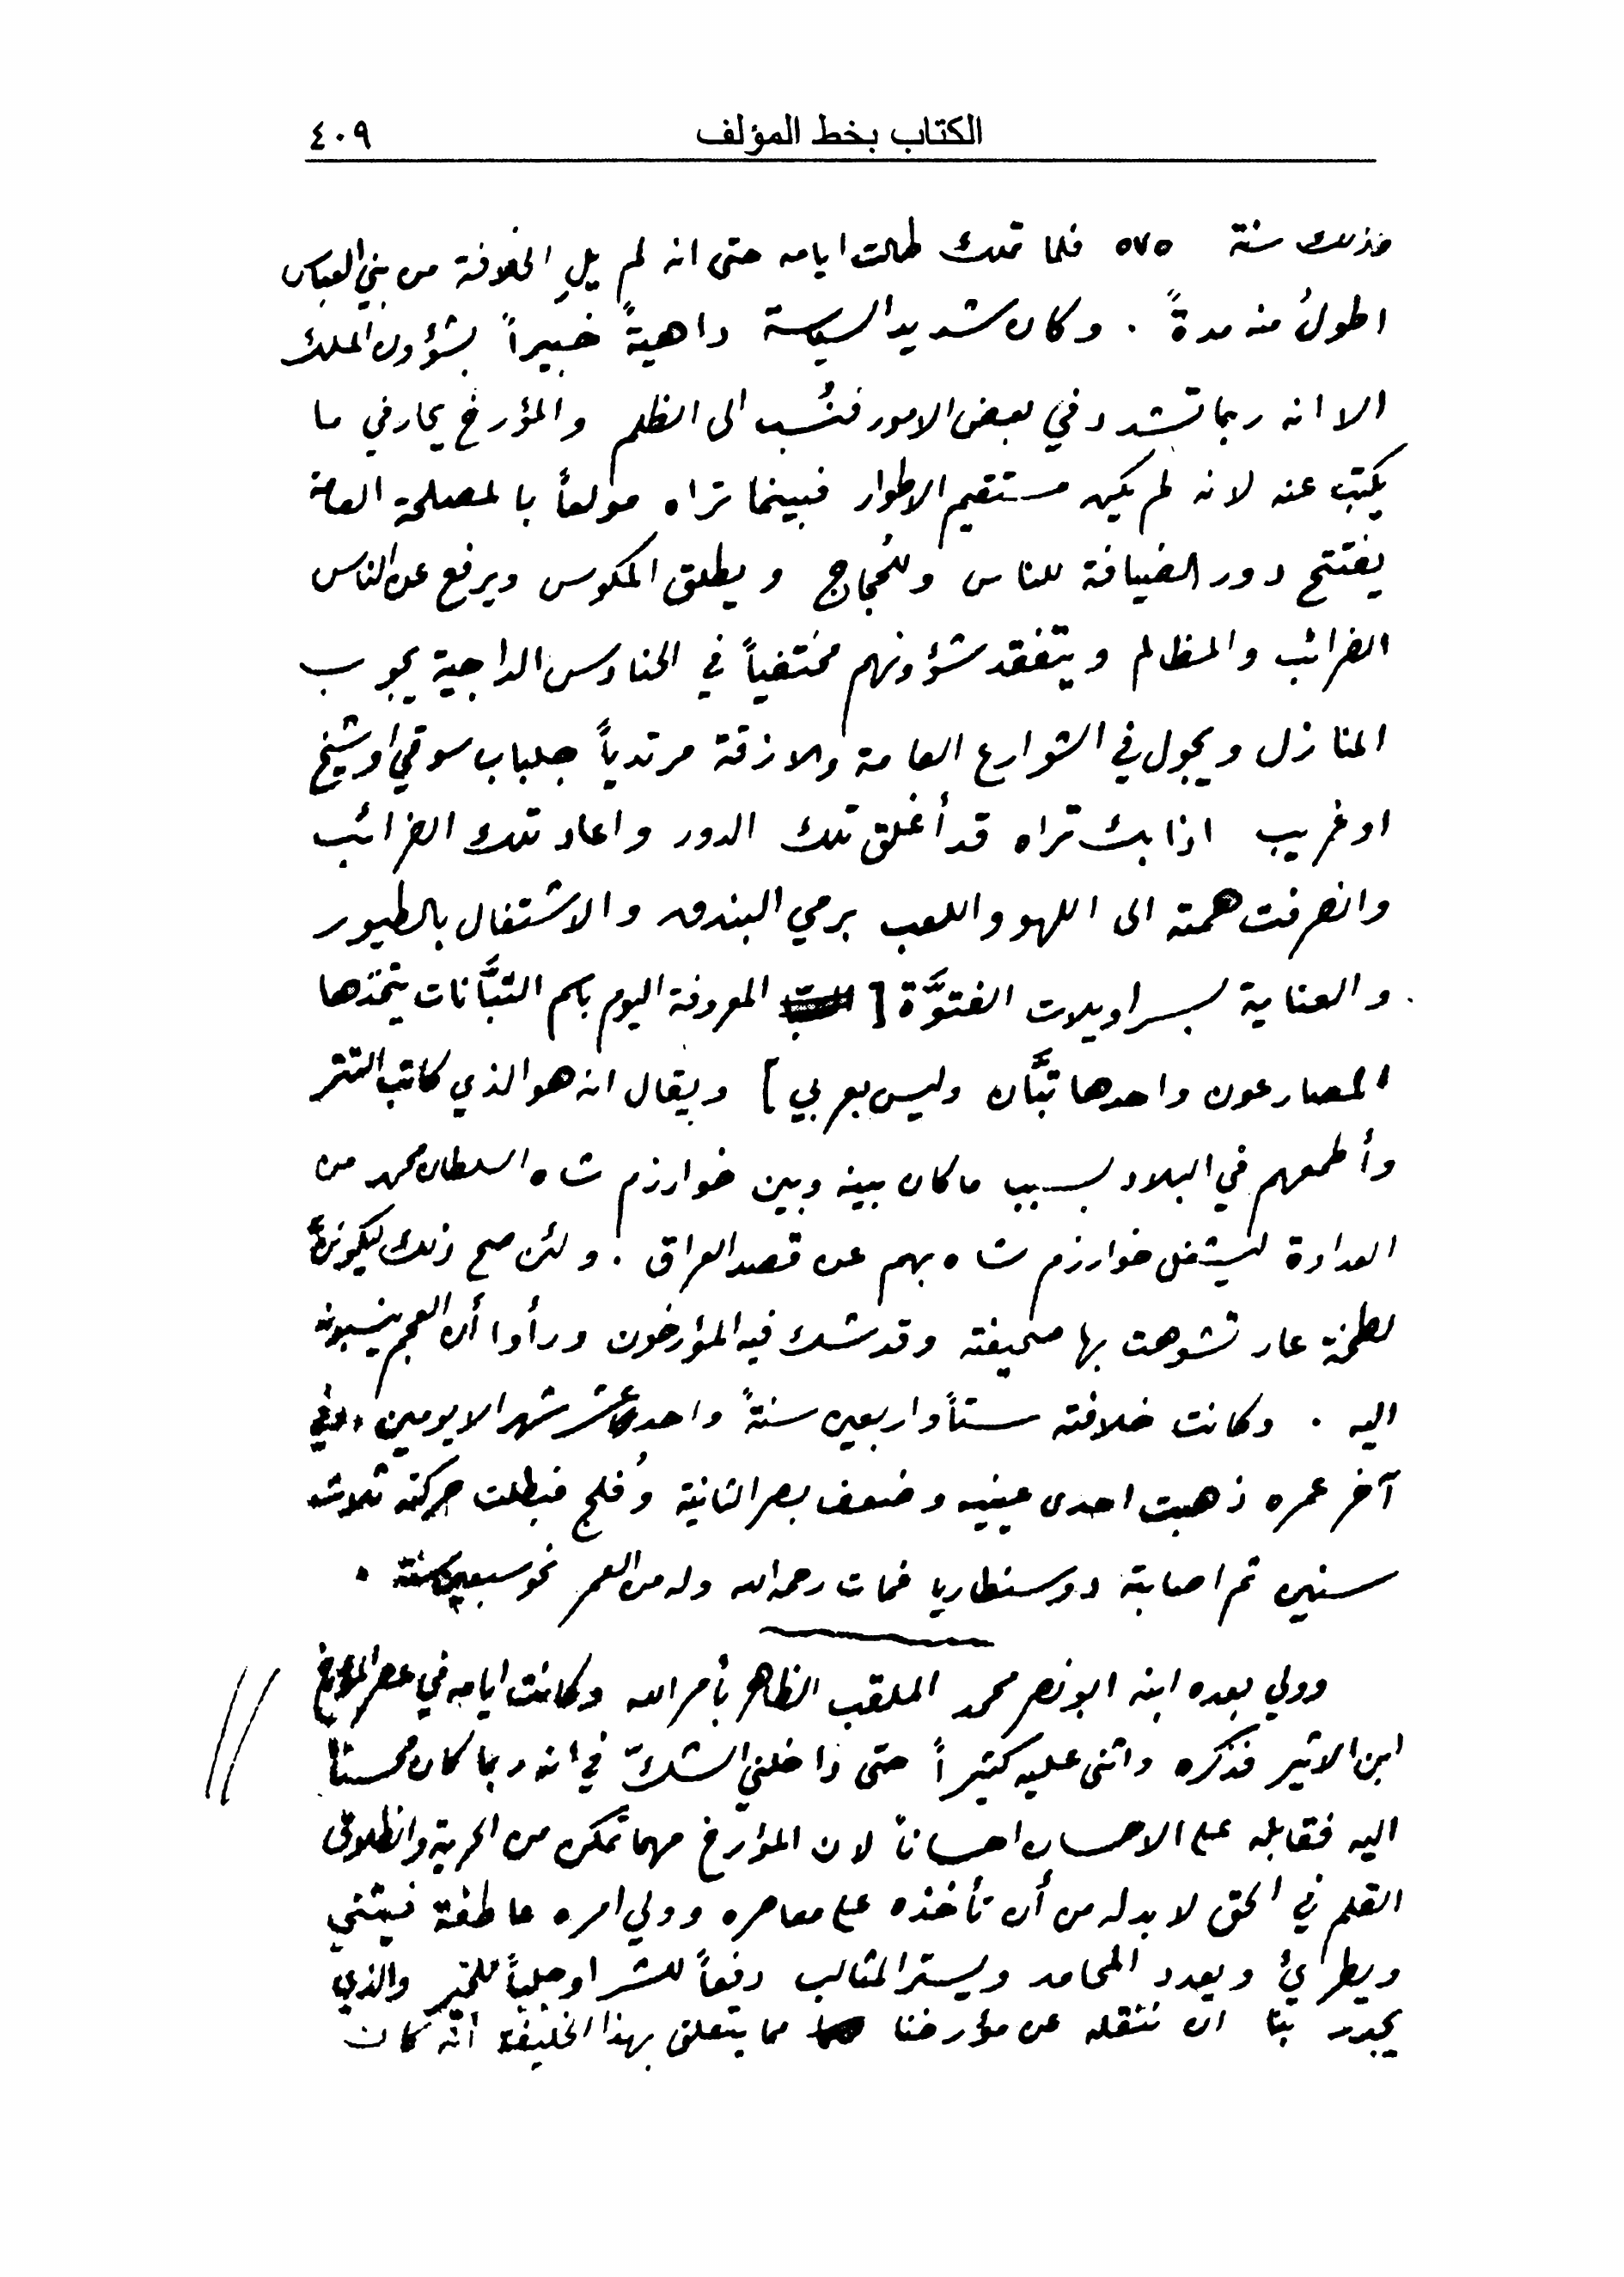 الكتاب بخط المؤلف ٤٠٩
وذلك سنة ٥٧٥ فلما تملك طالت ايامه حتى انه لم يلِ الخلافة من بني العباس
اطولُ منه مدةً . وكان شديد السياسة داهيةً خبيراً بشؤون الملك
الا انه ربما تشدد في بعض الامور فنُسب الى الظلم والمؤرخ يحار في ما
يكتب عنه لانه لم يكن مستقيم الاطوار فبينما تراه مولعاً بالمصلحة العامة
يفتتح دور الضيافة للناس وللحُجاج ويطلق المكوس ويرفع عن الناس
الضرائب والمظالم ويتفقد شؤونهم مختفياً في الحنادس الداجية يجوب
المنازل ويجول في الشوارع العامة والازقة مرتدياً جلباب سوقي او شيخ
او غريب اذا بك تراه قد أغلق تلك الدور واعاد تلك الضرائب
وانصرفت همته الى اللهو واللعب برمي البندق والاشتغال بالطيور
والعناية بسراويلات الفتوَّة [ المعروفة اليوم باسم التبَّانات يتخذها
المصارعون واحدها تبَّان وليس بعربي ] ويقال انه هو الذي كاتب التتر
وأطمعهم في البلاد بسبب ما كان بينه وبين خوارزم شاه السلطان محمد من
العداوة ليشتغل خوارزم شاه بهم عن قصد العراق . ولئن صح ذلك ليكوننَّ
لطخة عار تشوهت بها صحيفته وقد شك فيه المؤرخون ورأوا أن العجم ينسبونه
اليه . وكانت خلافته ستاً واربعين سنةً واحد عشر شهر الا يومين وفي
آخر عمره ذهبت احدى عينيه وضعف بصر الثانية وفُلج فبطلت حركته ثلاث
سنين ثم اصابته دوسنطاريا فمات رحمه الله وله من العمر نحو سبعين سنة .
وولي بعده ابنه ابو نصر محمد الملقب الظاهر بأمر الله وكانت ايامه في عصر المؤرخ
ابن الاثير فذكره واثنى عليه كثيراً حتى داخلني الشكّ في انه ربما كان محسناً
اليه فقابله على الاحسان احساناً لان المؤرخ مهما تمكن من الحرية وانطلاق
القلم في الحق لا بد له من أن تأخذه على معاصره وولي امره عاطفة فيثني
ويطرئ ويعدد المحامد ويستر المثالب دفعاً للشر او جلباً للخير والذي
يجدر بنا ان ننقله عن مؤرخنا مما يتعلق بهذا الخليفة انه كان